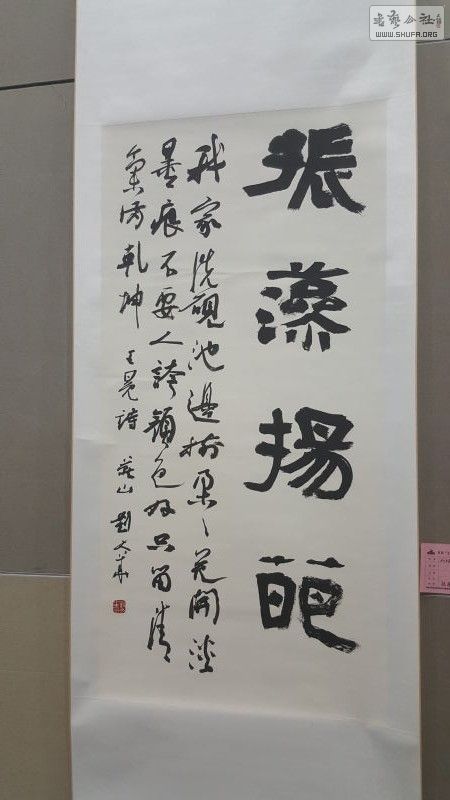 振藻揚葩
我家洗硯池邊樹朵〻花開澹
墨痕不要人誇顏色好只留清
氣滿乾坤 王冕詩
書藝公社
WWW.SHUFA.ORG